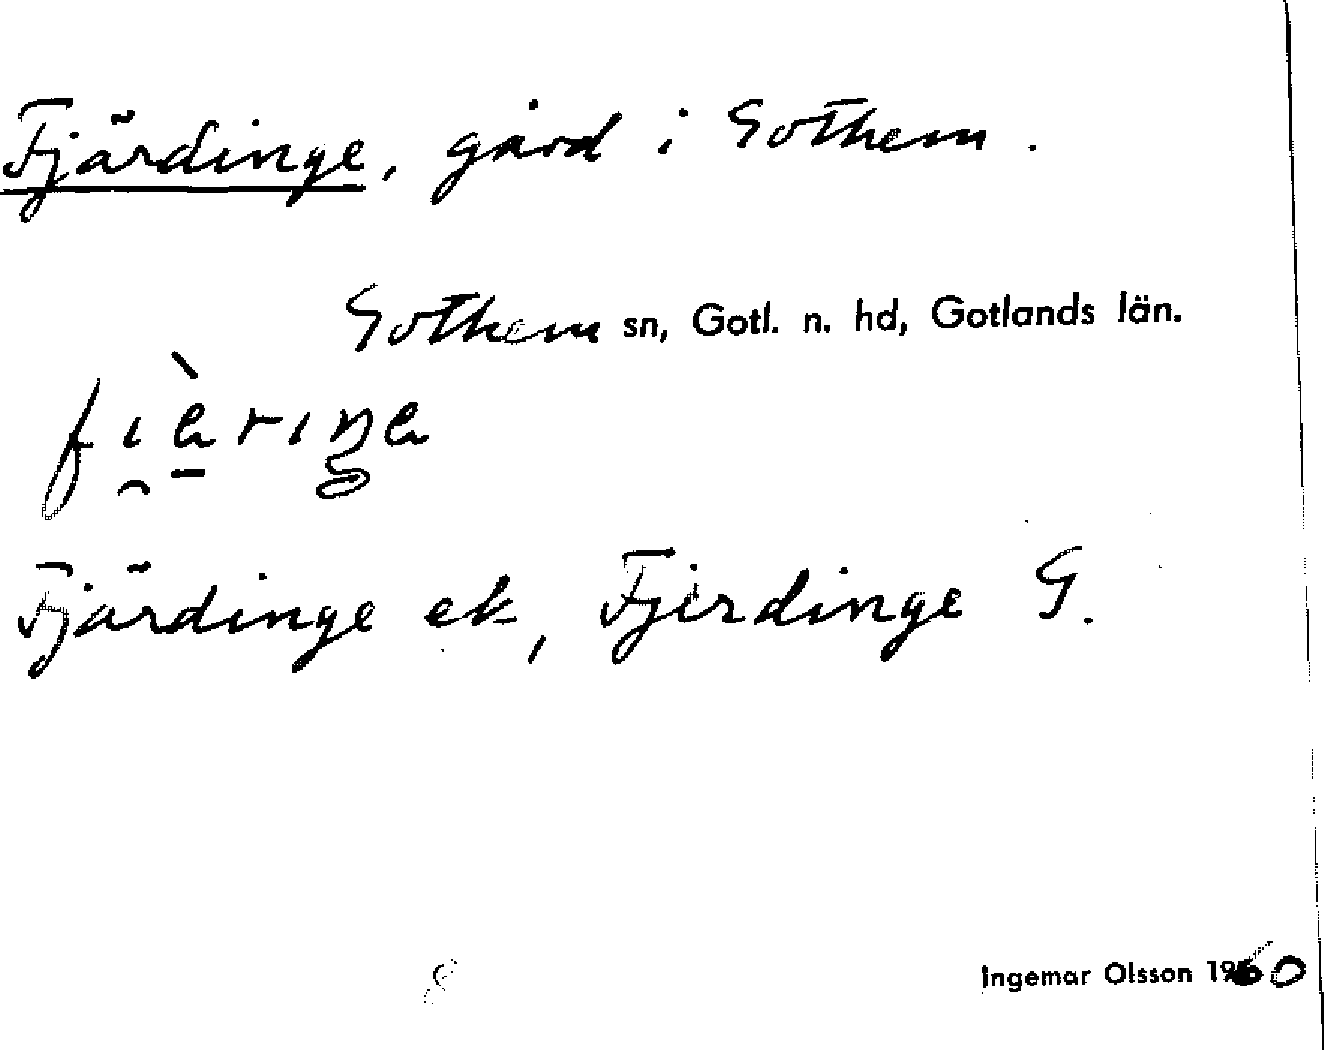 Fjärdinge, gård i Gothem.
Gothem sn, Gotl. n. hd, Gotlands län.
Fjärdinge ek, Fjerdinge G.
Ingemar Olsson 1960